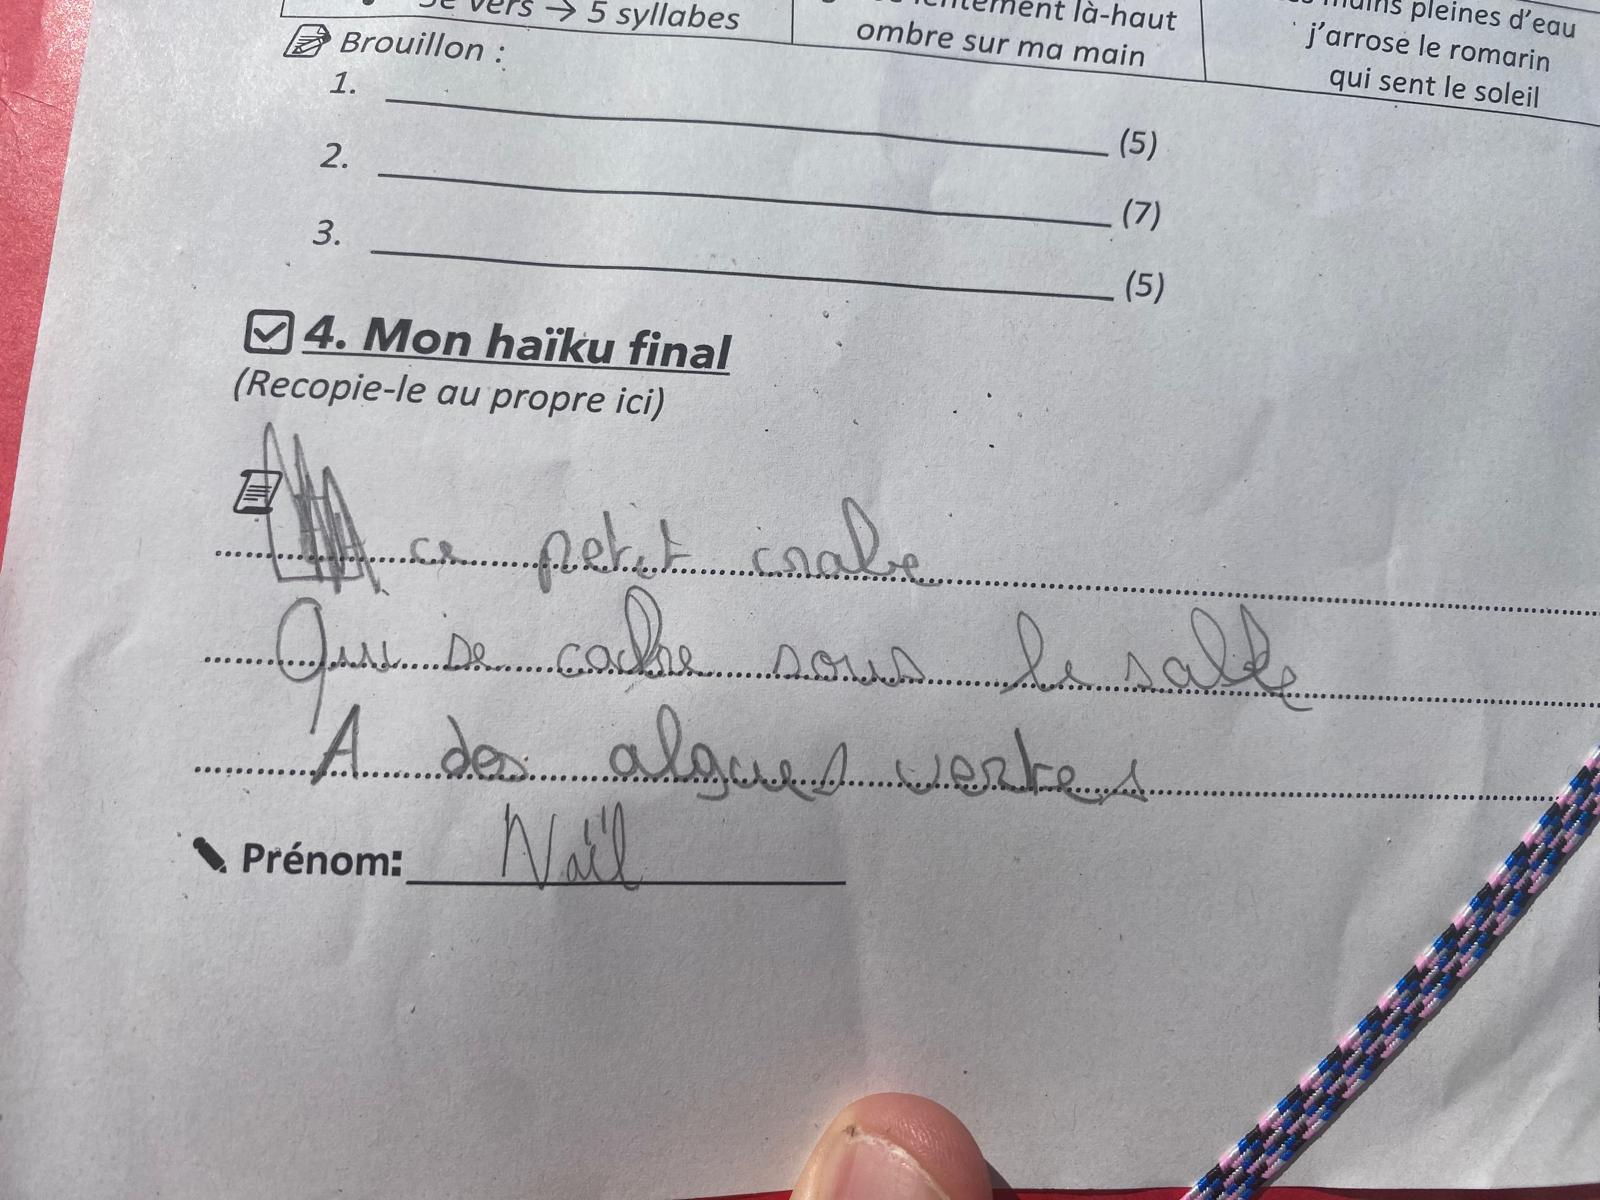 3e vers → 5 syllabes
lentement là-haut
ombre sur ma main
mains pleines d'eau
j'arrose le romarin
qui sent le soleil
Brouillon :
1. (5)
2. (7)
3. (5)
4. Mon haïku final
(Recopie-le au propre ici)
ce petit crabe
Qui se cache sous le sable
A des algues vertes
Prénom: Naïl